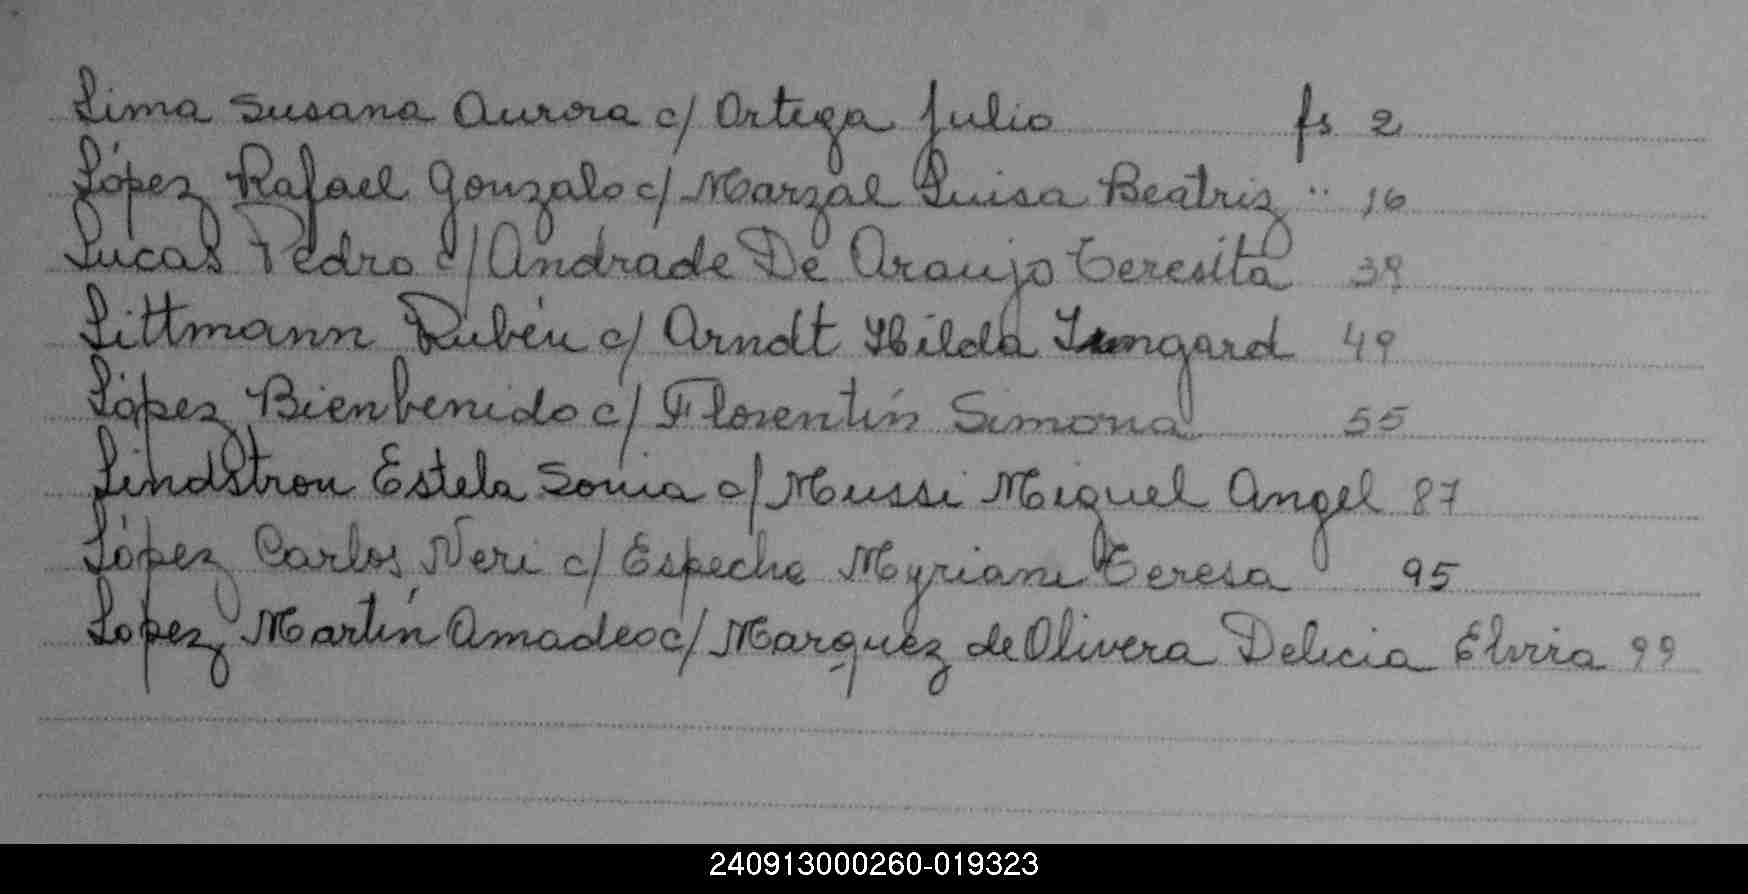 Lima Susana Aurora c/ Ortega Julio fs 2
López Rafael Gonzalo c/ Marzal Luisa Beatriz " 16
Lucas Pedro c/ Andrade De Araujo Teresita 39
Littmann Rubén c/ Arndt Hilda 49
López Bienbenido c/ Florentín Simona 55
Lindstron Estela Sonia c/ Mussi Miguel Angel 87
López Carlos Neri c/ Espeche Myriam Teresa 95
Lopez Martín Amadeo c/ Marquez de Olivera Delicia Elvira 99
240913000260-019323